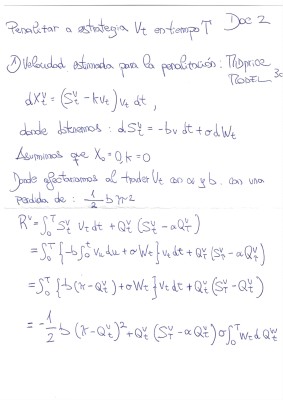 Penalizar a estrategia Vt en tiempo T Doc 2
1) Velocidad estimada para la penalización: MIDPRICE MODEL
dX_t^v = (S_t^v - k v_t) v_t dt,
donde tenemos: dS_t^v = -b v dt + σ dW_t
Asumimos que X_0 = 0, k = 0
Donde afectaríamos al trader V_t con α y b. con una
perdida de: 1/2 b π^2
R^v = ∫_0^T S_t^v v_t dt + Q_T^v (S_T^v - α Q_T^v)
= ∫_0^T {-b ∫_0^t v_u du + σ W_t} v_t dt + Q_T^v (S_T^v - α Q_T^v)
= ∫_0^T {-b (π - Q_t^v) + σ W_t} v_t dt + Q_T^v (S_T^v - Q_T^v)
= -1/2 b (π - Q_T^v)^2 + Q_T^v (S_T^v - α Q_T^v) σ ∫_0^T W_t d Q_t^v